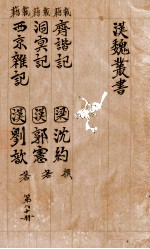 漢魏叢書
載籍 齊諧記 梁 沈約 撰
載籍 洞冥記 漢 郭憲 著
載籍 西京雜記 漢 劉歆 著
第六十冊